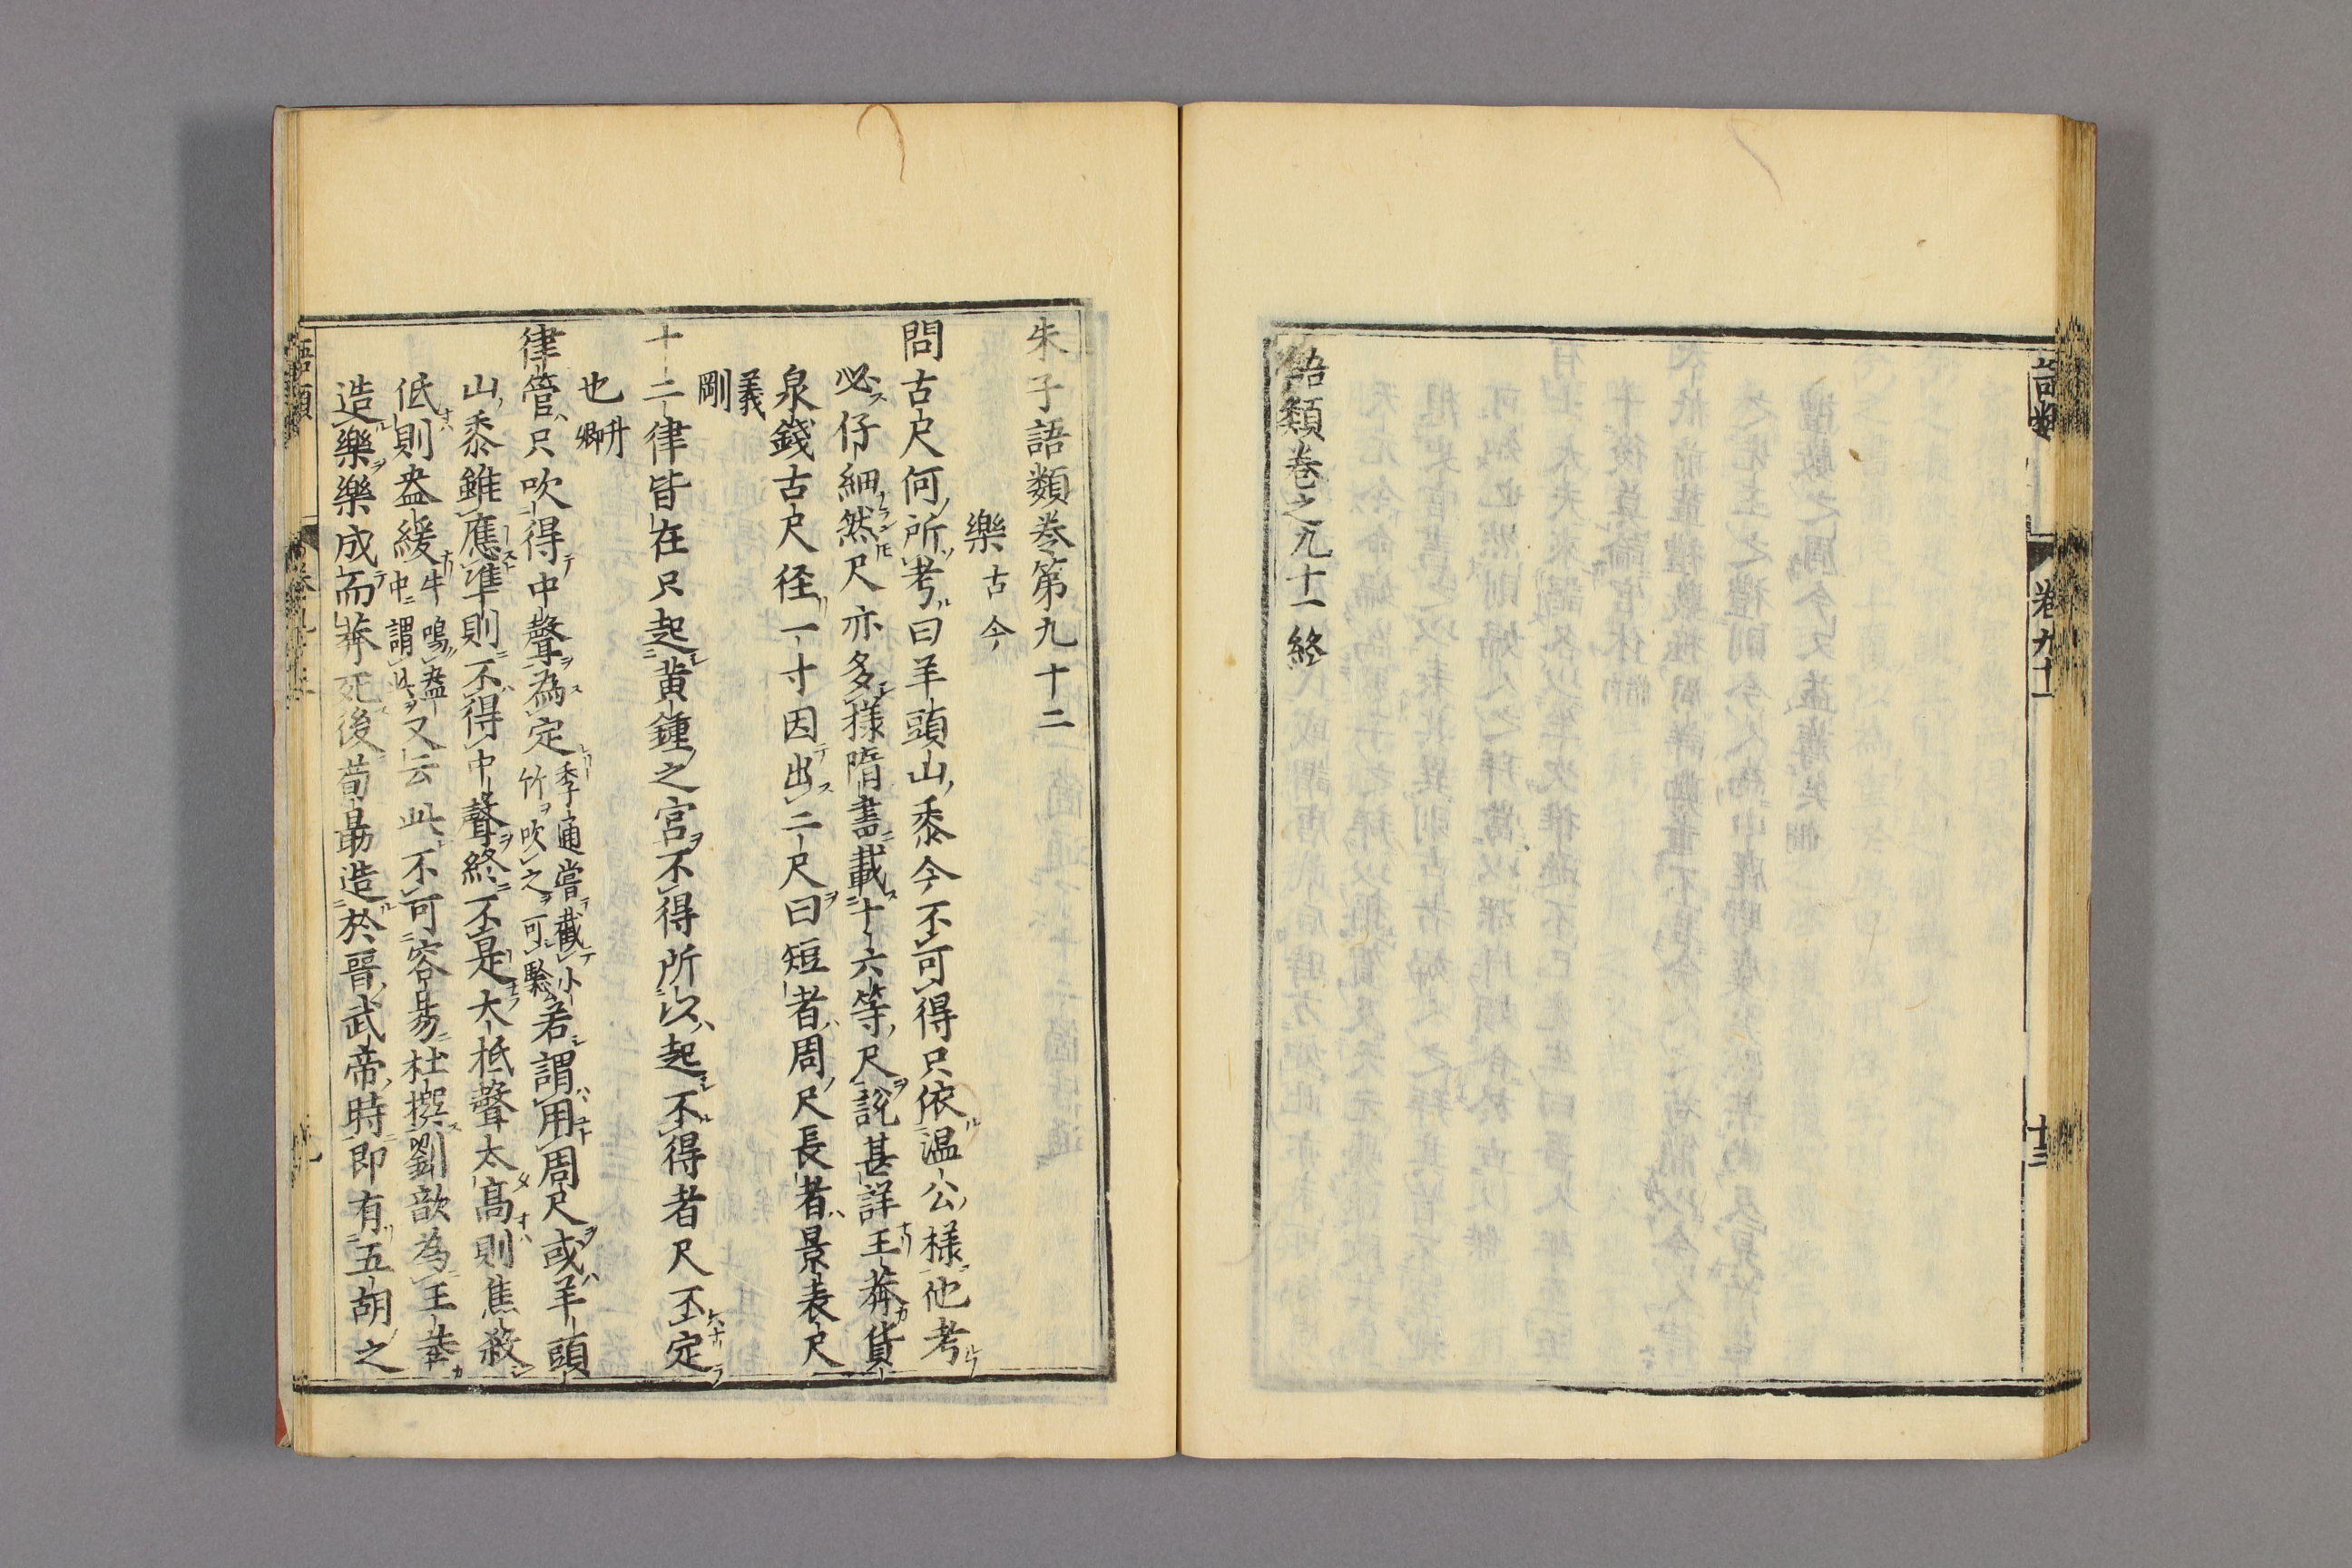 語類卷之九十一終
卷九十一
十三
朱子語類卷第九十二
樂古今
問古尺何所考曰羊頭山黍今不可得只依温公樣他考
必仔細然尺亦多樣隋書載十六等尺說甚詳王莽貨
泉錢古尺径一寸因出二尺曰短者周尺長者景表尺
義剛
十二律皆在只起黃鍾之宮不得所以起不得者尺不定
也升卿
律管只吹得中聲為定季通嘗截小竹吹之可驗若謂用周尺或羊頭
山黍雖應準則不得中聲終不是大抵聲太高則焦殺
低則盎緩牛鳴盎中謂此又云此不可容易杜撰劉歆為王莽
造樂樂成而莽死後荀勗造於晉武帝時即有五胡之
語類